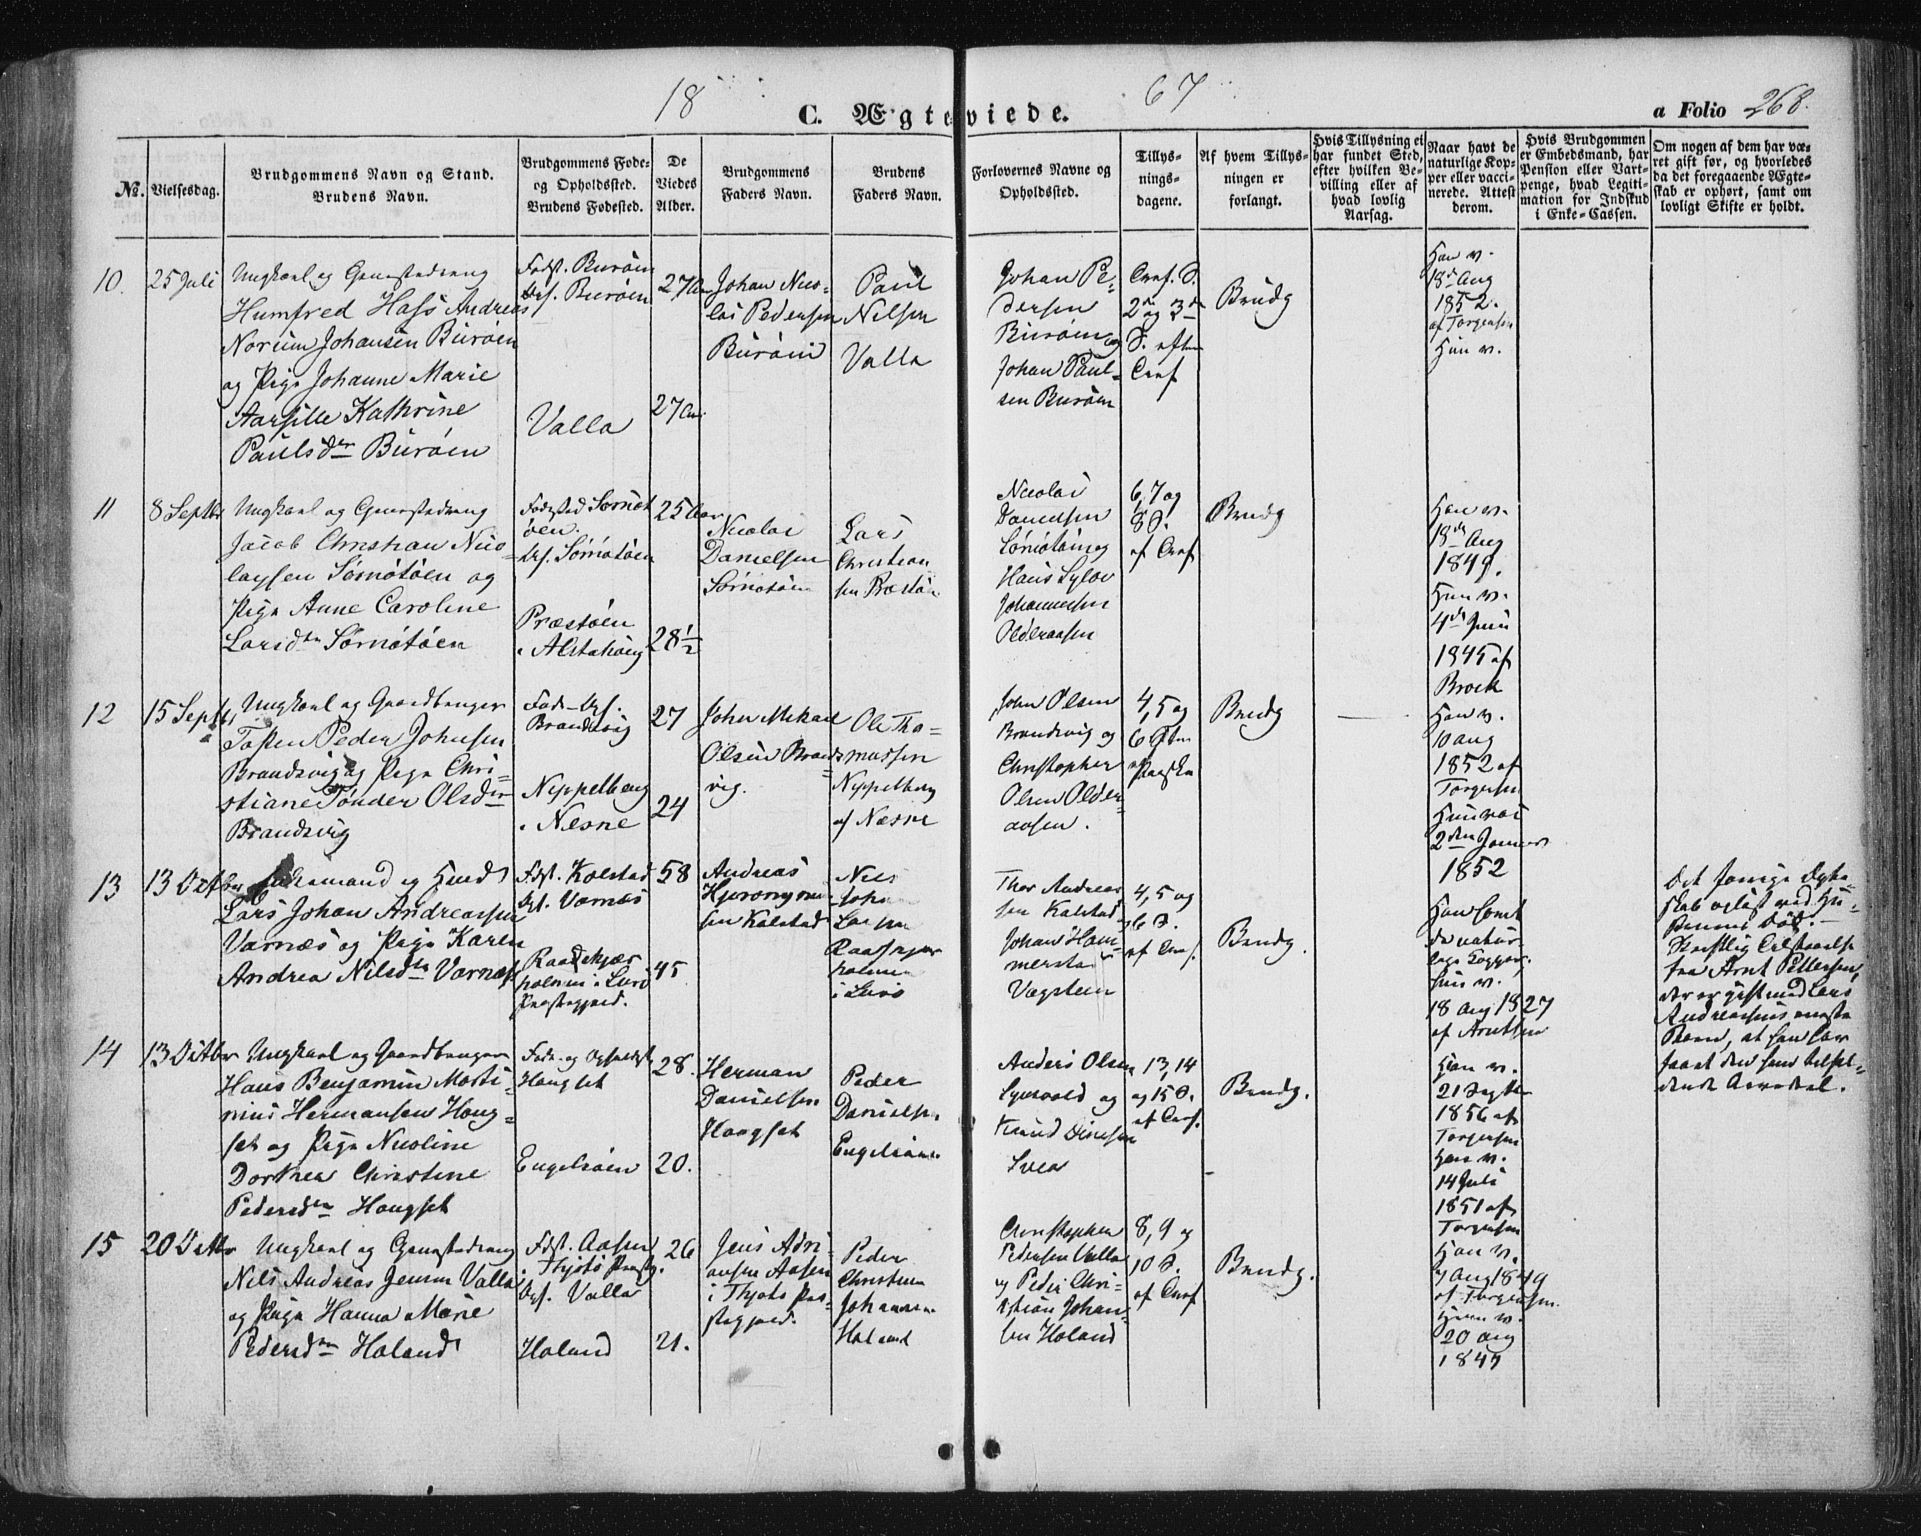 18 67
C. Ægteviede.
a Folio 268.
№.
Vielsesdag.
Brudgommens Navn og Stand.
Brudens Navn.
Brudgommens Føde-
og Opholdssted.
Brudens Fødested.
De
Viedes
Alder.
Brudgommens
Faders Navn.
Brudens
Faders Navn.
Forlovernes Navne og
Opholdssted.
Tillys-
nings-
dagene.
Af hvem Tillys-
ningen er
forlangt.
Hvis Tillysning ei
har fundet Sted,
efter hvilken Be-
villing eller af
hvad lovlig
Aarsag.
Naar havt de
naturlige Kop-
per eller vacci-
nerede. Attest
derom.
Hvis Brudgommen
er Embedsmand, har
Pension eller Vart-
penge, hvad Legiti-
mation for Indskud
i Enke-Cassen.
Om nogen af dem har væ-
ret gift før, og hvorledes
da det foregaaende Ægte-
skab er ophørt, samt om
lovligt Skifte er holdt.
10.
25 Juli
Ungkarl og
Humfred Hass Andreas
Norum Johansen Burøen
og Pige Johanne Marie
Kathrine
Paulsdtr Burøen
Fødst. Burøen
Burøen
Valla
27
27
Johan Nico-
lai Pedersen
Burøen
Paul
Nilsen
Valla
Johan Pe-
dersen
Burøen og
Johan Paul-
sen Burøen
2 og 3
S. efter
Brudg
Han v.
18de Aug
1852.
af Torgersen
Hun v.
11
8 Septbr
Ungkarl og
Jacob Christian Nico-
laysen Sørnøtøen og
Pige Anne Caroline
Larsdtr Sørnøtøen
Fødested Sørnøt
øen.
Sørnøtøen
Præstøen
i Alstahoug
25
28½
Nicolai
Danielsen
Sørnøtøen
Lars
Christian
sen Præstøen
Nicolai
Danielsen
Sørnøtøen og
Hans
Johannesen
Olderaasen
6, 7 og
8 S.
Brudg
Han v.
18de Aug
Hun v.
4de Juni
1845 af
Brock
12
15 Septbr
Ungkarl og Gaardbruger
Tosten Peder Johnsen
Brandsvig og Pige Chri-
stiane Tønder Olsdtr
Brandsvig
Brandsvig
Neppelberg
i Nesne
27
24
John Mikael
Olsen Brands-
vig.
Ole Tho-
massen
Neppelberg
af Næsne
John Olsen
Brandsvig og
Christopher
Olsen Older-
aasen.
4, 5 og
6 S.
Paaske
Brudg
Han v.
10 aug
1852 af
Torgersen
Hun v.
2den Januar
1852
13
13 Octbr
Enkemand og
Lars Johan Andreassen
Varnæs og Pige Karen
Andrea Nilsdtr Varnæs
Fdst. Kolstad
Varnæs
holmen i Lurø
Præstegjeld.
58
45
Andreas
Hjeronymus
sen Kolstad
Nils
Johan
Larsen
holmen
i Lurø
Thor Andreas
sen Kolstad og
Johan Ham-
merstad
Vægstein
4, 5 og
6 S.
Brudg.
Han havt
de natur
lige Kopper.
Hun v.
18 Aug 1827
af Arntsen
Det forrige Ægte-
skab opløst ved Hu-
struens Død.
Skriftlig Tilstaaelse
fra Arnt Pettersen,
der er gift med Lars
Andreassens eneste
Barn, at han har
faaet den ham tilfal-
dende Arvedeel.
14
13 Octbr
Ungkarl og Gaardbruger
Hans Benjamin Marti-
nius Hermansen Houg-
set og Pige Nicoline
Dorthea Christine
Pedersdtr Hougset
Føde- og Opholdst
Hougset
Engelsøen
28.
20.
Herman
Danielsen
Hougset
Peder
Danielsen
Engelsøen
Anders Olsen
og
Knud
13, 14
og 15 S.
Brudg.
Han v.
21 Septbr
1856 af
Torgersen
Hun v.
14 Juli
1851 af
Torgersen
15
20 Octbr
Ungkarl og
Nils Andreas Jensen Valla
og Pige Hanna Marie
Pedersdtr Holand
Fdst. Aasen
i Thjøtø Præstg.
Valla
Holand
26
21.
Jens Adri-
ansen Aasen
i Thjøtø Præ-
stegjeld.
Peder
Christian
Johansen
Holand
Christopher
Pedersen Valla
og Peder Chri-
stian Johan-
sen Holand
8, 9 og
10 S.
Brudg.
Han v.
7 Aug 1849
af Torgersen.
Hun v.
20 Aug